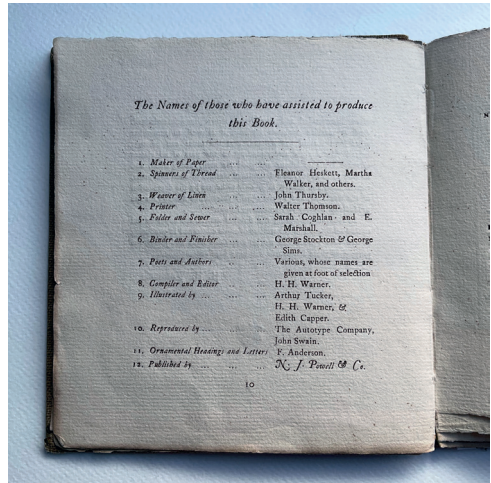 The Names of those who have assisted to produce
this Book.
1. Maker of Paper ... ...
2. Spinners of Thread ... ... Eleanor Heskett, Martha
Walker, and others.
3. Weaver of Linen ... ... John Thursby.
4. Printer ... ... ... Walter Thomson.
5. Folder and Sewer ... ... Sarah Coghlan and E.
Marshall.
6. Binder and Finisher ... ... George Stockton & George
Sims.
7. Poets and Authors ... ... Various, whose names are
given at foot of selection
8. Compiler and Editor ... H. H. Warner.
9. Illustrated by ... ... ... Arthur Tucker,
H. H. Warner, &
Edith Capper.
10. Reproduced by ... ... ... The Autotype Company,
John Swain.
11. Ornamental Headings and Letters F. Anderson.
12. Published by ... ... ... N. J. Powell & Co.
10
N